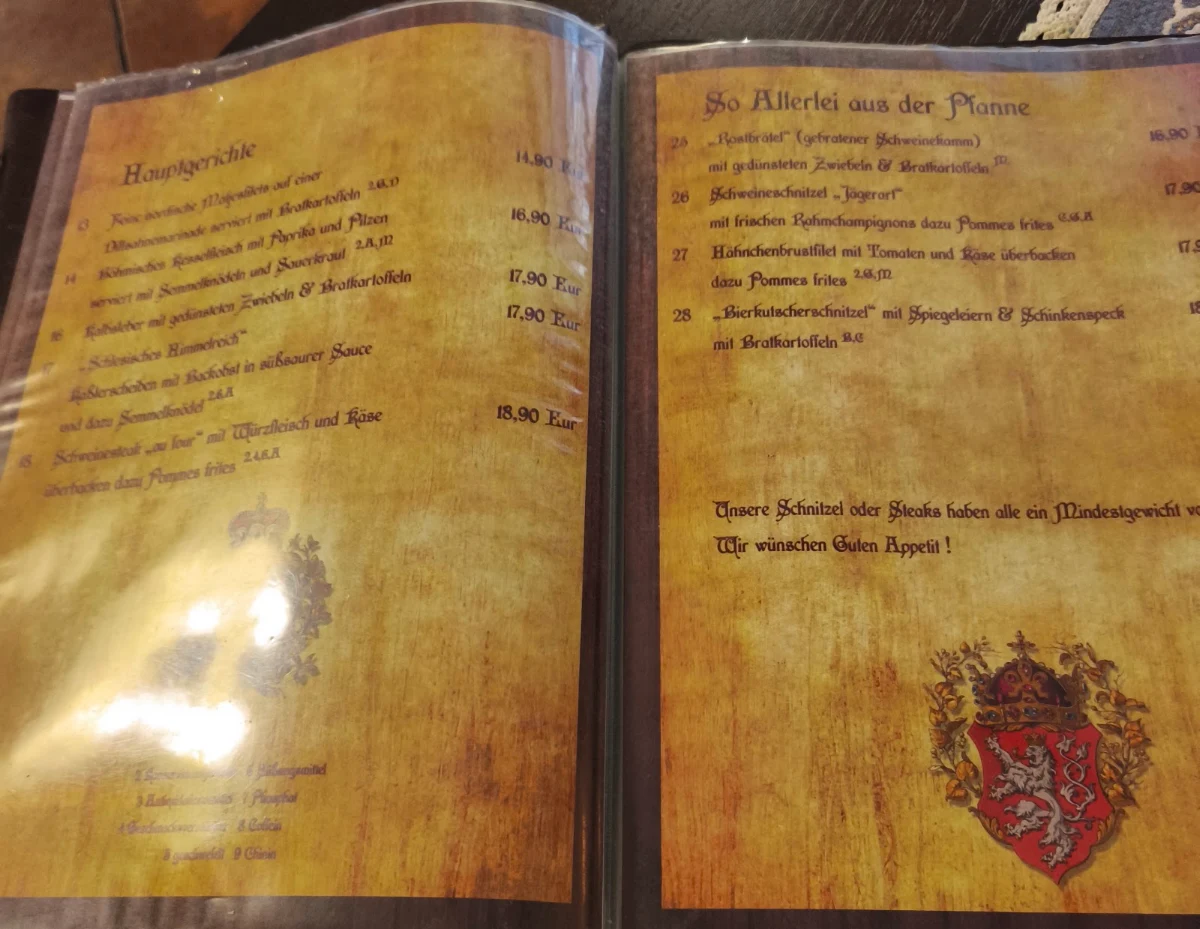 Hauptgerichte
13 Feine nordische Matjesfilets auf einer 14,90 Eur
Dillsahnemarinade serviert mit Bratkartoffeln
14 Böhmisches Kesselfleisch mit Paprika und Pilzen 16,90 Eur
serviert mit Semmelknödeln und Sauerkraut 2,A,M
16 Kalbsleber mit gedünsteten Zwiebeln & Bratkartoffeln 17,90 Eur
17 „Schlesisches Himmelreich“ 17,90 Eur
Kaßlerscheiben mit Backobst in süßsaurer Sauce
und dazu Semmelknödel 2,6,A
Schweinesteak „au four“ mit Würzfleisch und Käse 18,90 Eur
überbacken dazu Pommes frites 2,4,8,A
6 Süßungsmittel
Phosphat
8 Coffein
9 Chinin
So Allerlei aus der Pfanne
25 „Rostbrätel“ (gebratener Schweinekamm) 16,90
mit gedünsteten Zwiebeln & Bratkartoffeln M
26 Schweineschnitzel „Jägerart“ 17,90
mit frischen Rahmchampignons dazu Pommes frites
27 Hähnchenbrustfilet mit Tomaten und Käse überbacken 17,9
dazu Pommes frites 2,G,M
28 „Bierkutscherschnitzel“ mit Spiegeleiern & Schinkenspeck 18
mit Bratkartoffeln
Unsere Schnitzel oder Steaks haben alle ein Mindestgewicht vo
Wir wünschen Guten Appetit !